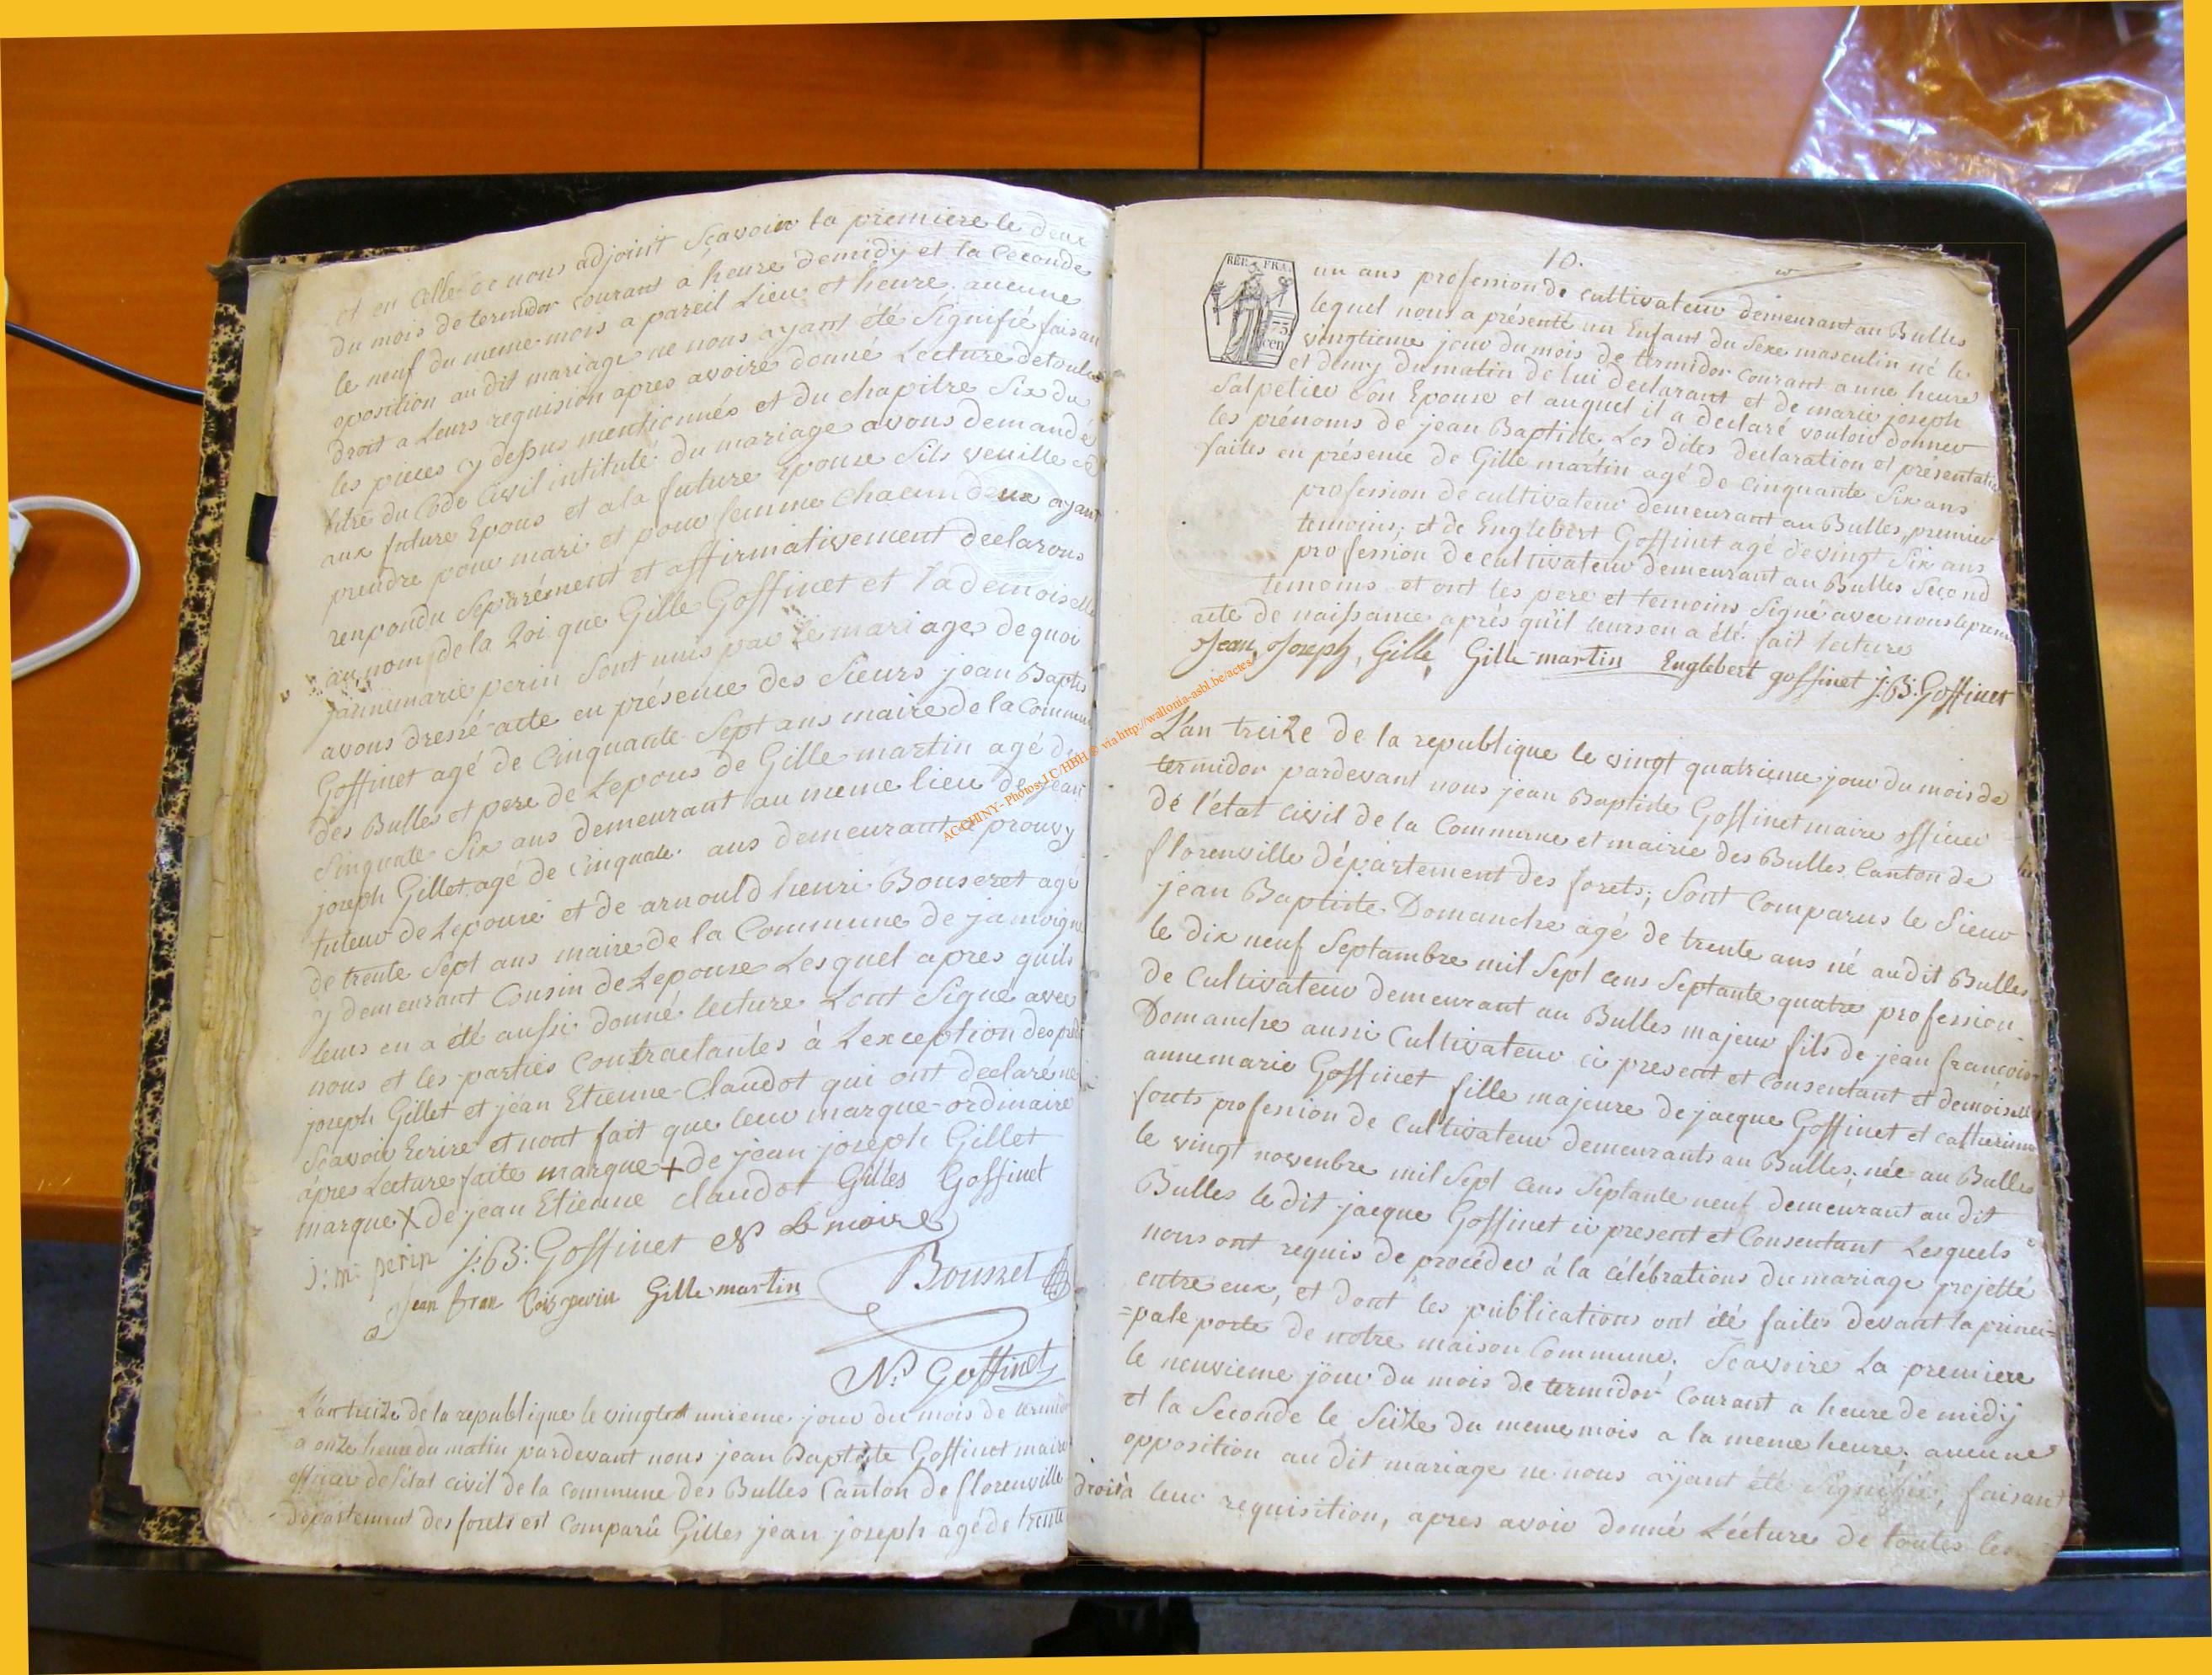 et en celle de nous adjoint Sçavoir la premiere le deux
du mois de termidor courant a heure demidy et la Ceconde
le neuf du meme mois a pareil Lieu et heure. aucune
oposition au dit mariage ne nous ayant été Signifié faisan
droit a Leurs requision apres avoire donné Lecture detoute
les pieces cy dessus mentionnés et du chapitre Six du
titre du Code Civil intitulé du mariage avons demandé
aux future Epous et a la future Epouse Sils veuille se
prendre pour mari et pour femme chacun deux ayant
renpondu Séparément et affirmativement declarons
au nom de la Loi que Gille Goffinet et la demoiselle
jannemarie perin Sont unis par le mariage dequoi
avons dressé acte en présence des Sieurs jean Baptis
Goffinet agé de Cinquante Sept ans maire de la Commune
des Bulles et pere de Lepous de Gille martin agé de
Sinquate Six ans demeurant au meme lieu de jean
joseph Gillet agé de Cinquate ans demeurant a prouvy
tuteur de Lepouse et de arnould henri Bouseret agé
de trente Sept ans maire de la Commune de jamoigne
y demeurant Cousin de Lepouse Lesquel apres quils
leurs en a été aussi donné lecture Lont Signé avec
nous et les parties Contractantes à Lexception des
joseph Gillet et jean Etienne Claudot qui ont declaré ne
Scavoir Ecrire et nont fait que leur marque ordinaire
apres Lecture faite marque + de jean joseph Gillet
marque X de jean Etienne Claudot Gilles Goffinet
j: m: perin j:B: Goffinet Le moire
jean fran cois perin Gille martin Bousret
N: Goffinet
L'an treize de la republique le vingtet unieme jour du mois de termid
a onze heure du matin pardevant nous jean Baptiste Goffinet maire
officier de l'état civil de la Commune des Bulles Canton de florenville
département des forets est Comparû Gilles jean joseph agé de trente
10.
REP. FRA.
75 cen
un ans profession de cultivateur demeurant au Bulles
lequel nous a présenté un Enfant du Sexe masculin né le
vingtieme jour du mois de termidor courant a une heure
et demy du matin de lui declarant et de marie joseph
Salpetier Son Epouse et auquel il a declaré vouloir donner
les prénoms de jean Baptiste. Les dites declaration et présentation
faites en présence de Gille martin agé de Cinquante Six ans
profession de cultivateur demeurant au Bulles, premier
temoins; et de Englebert Goffinet agé de vingt Six ans
profession de cultivateur demeurant au Bulles Second
temoins et ont les pere et temoins Signé avec nous le present
acte de naissance après qu'il leurs en a été fait lecture
Jean, Joseph, Gille, Gille martin Englebert goffinet J:B: Goffinet
L'an treize de la republique le vingt quatrieme jour du mois de
termidor pardevant nous jean Baptiste Goffinet maire officier
de l'état civil de la Commune et mairie des Bulles Canton de
florenville département des forets; Sont Comparus le Sieur
jean Baptiste Domanche agé de trente ans né audit Bulles
le dix neuf Septambre mil Sept cens Septante quatre profession
de Cultivateur demeurant au Bulles majeur fils de jean francois
Domanche aussi Cultivateur ci present et Consentant et demoiselle
annemarie Goffinet fille majeure de jacque Goffinet et catherinne
fonts profession de Cultivateur demeurants au Bulles; née au Bulles
le vingt novenbre mil Sept cens Septante neuf demeurant au dit
Bulles le dit jacque Goffinet ci present et Consentant Lesquels
nous ont requis de procéder à la célébrations du mariage projetté
entre eux, et dont les publications ont été faites devant la princi=
=pale porte de notre maison Commune, Scavoire La premiere
le neuvieme jour du mois de termidor Courant a heure de midy
et la Seconde le Seize du meme mois a la meme heure; aucune
opposition au dit mariage ne nous aÿant été Signifiée, faisant
droit à leur requisition, apres avoir donné Lécture de toutes les
AC CHINY - Photos J.C/HBH © via http://wallonia-asbl.be/actes